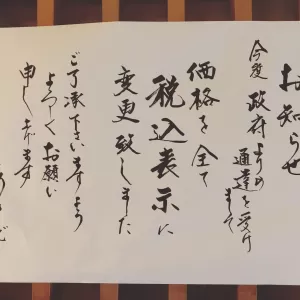 お知らせ
今度 政府よりの
通達を受けまして
価格を全て
税込表示に
変更致しました
ご了承下さいますよう
よろしくお願い
申し上げます